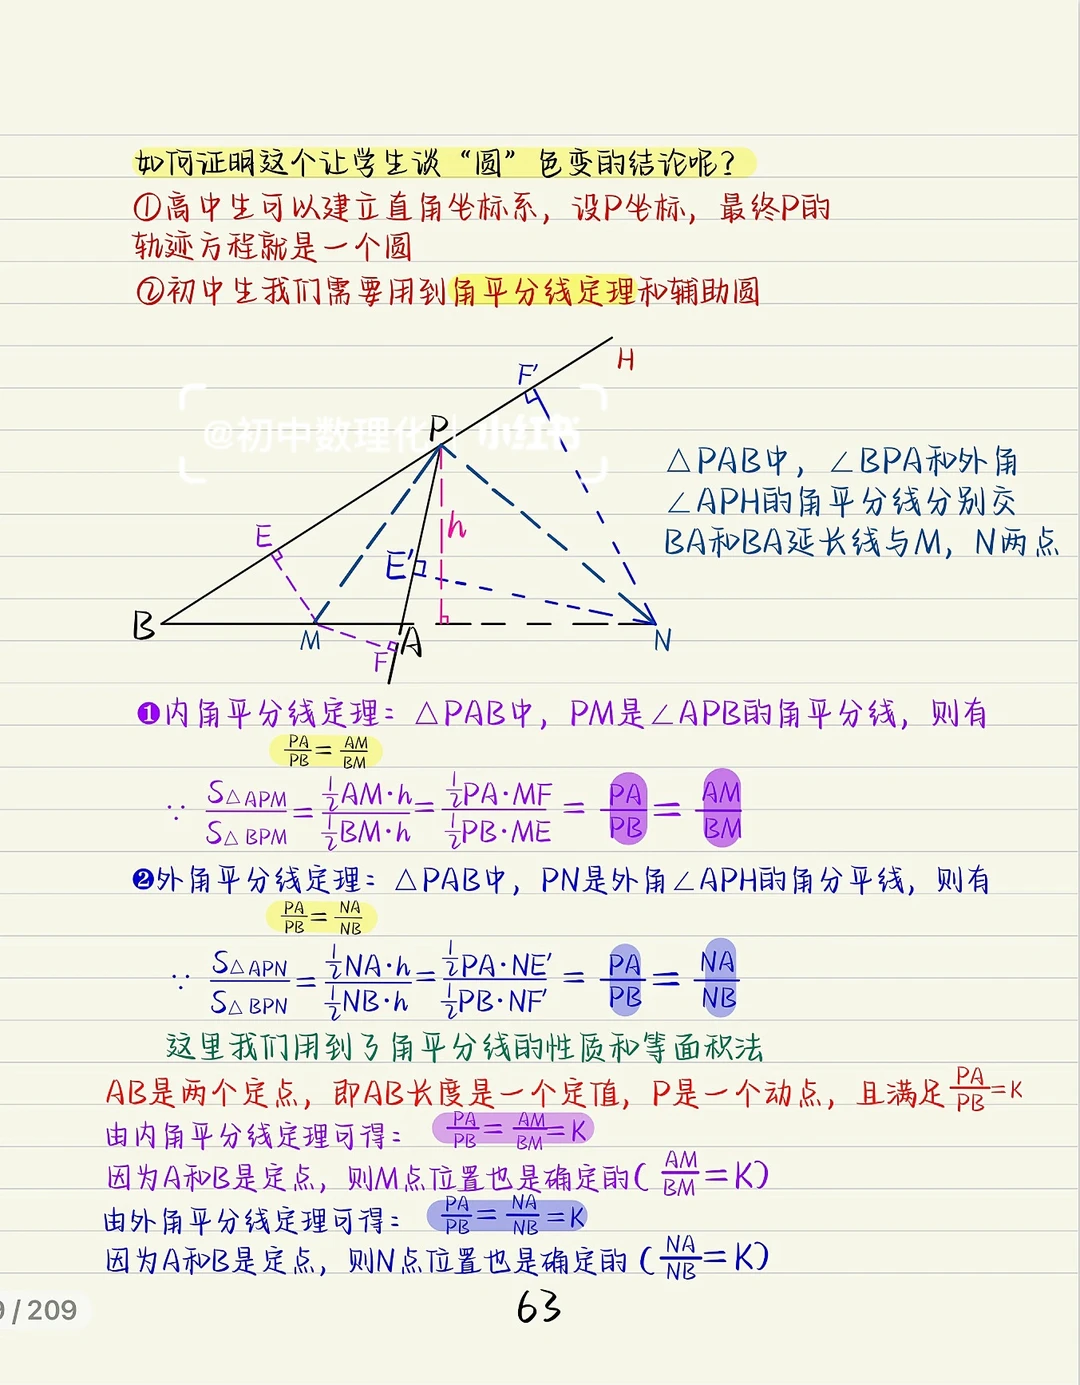 如何证明这个让学生谈“圆”色变的结论呢？
①高中生可以建立直角坐标系，设P坐标，最终P的
轨迹方程就是一个圆
②初中生我们需要用到角平分线定理和辅助圆
H
F'
@初中数理化 小红书
P
△PAB中，∠BPA和外角
∠APH的角平分线分别交
BA和BA延长线与M，N两点
E
h
E'
B
M
A
F
N
❶内角平分线定理：△PAB中，PM是∠APB的角平分线，则有
PA/PB=AM/BM
∵ S△APM/S△BPM=½AM·h/½BM·h=½PA·MF/½PB·ME=PA/PB=AM/BM
❷外角平分线定理：△PAB中，PN是外角∠APH的角分平线，则有
PA/PB=NA/NB
∵ S△APN/S△BPN=½NA·h/½NB·h=½PA·NE'/½PB·NF'=PA/PB=NA/NB
这里我们用到了角平分线的性质和等面积法
AB是两个定点，即AB长度是一个定值，P是一个动点，且满足PA/PB=K
由内角平分线定理可得：PA/PB=AM/BM=K
因为A和B是定点，则M点位置也是确定的(AM/BM=K)
由外角平分线定理可得：PA/PB=NA/NB=K
因为A和B是定点，则N点位置也是确定的(NA/NB=K)
63
9/209